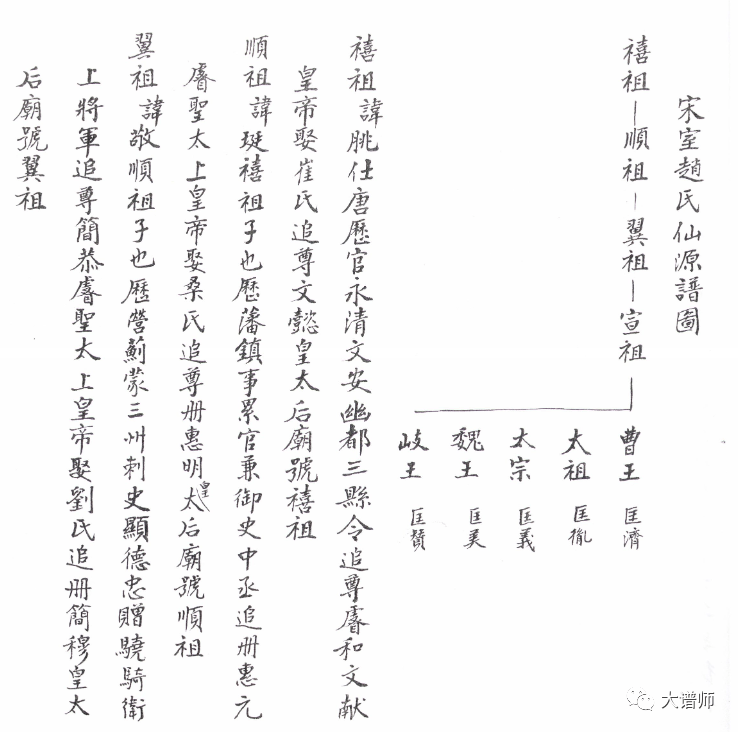 宋室趙氏仙源譜圖
禧祖－順祖－翼祖－宣祖
曹王 匡濟
太祖 匡胤
太宗 匡義
魏王 匡美
岐王 匡贊
禧祖 諱朓仕唐歷官永清文安幽都三縣令追尊睿和文献
皇帝娶崔氏追尊文懿皇太后廟號禧祖
順祖 諱珽禧祖子也歷藩鎮事累官兼御史中丞追册惠元
睿聖太上皇帝娶桑氏追尊册惠明皇太后廟號順祖
翼祖 諱敬順祖子也歷營薊蒙三州刺史顯德忠贈驍騎衛
上將軍追尊簡恭睿聖太上皇帝娶劉氏追册簡穆皇太
后廟號翼祖
大谱师